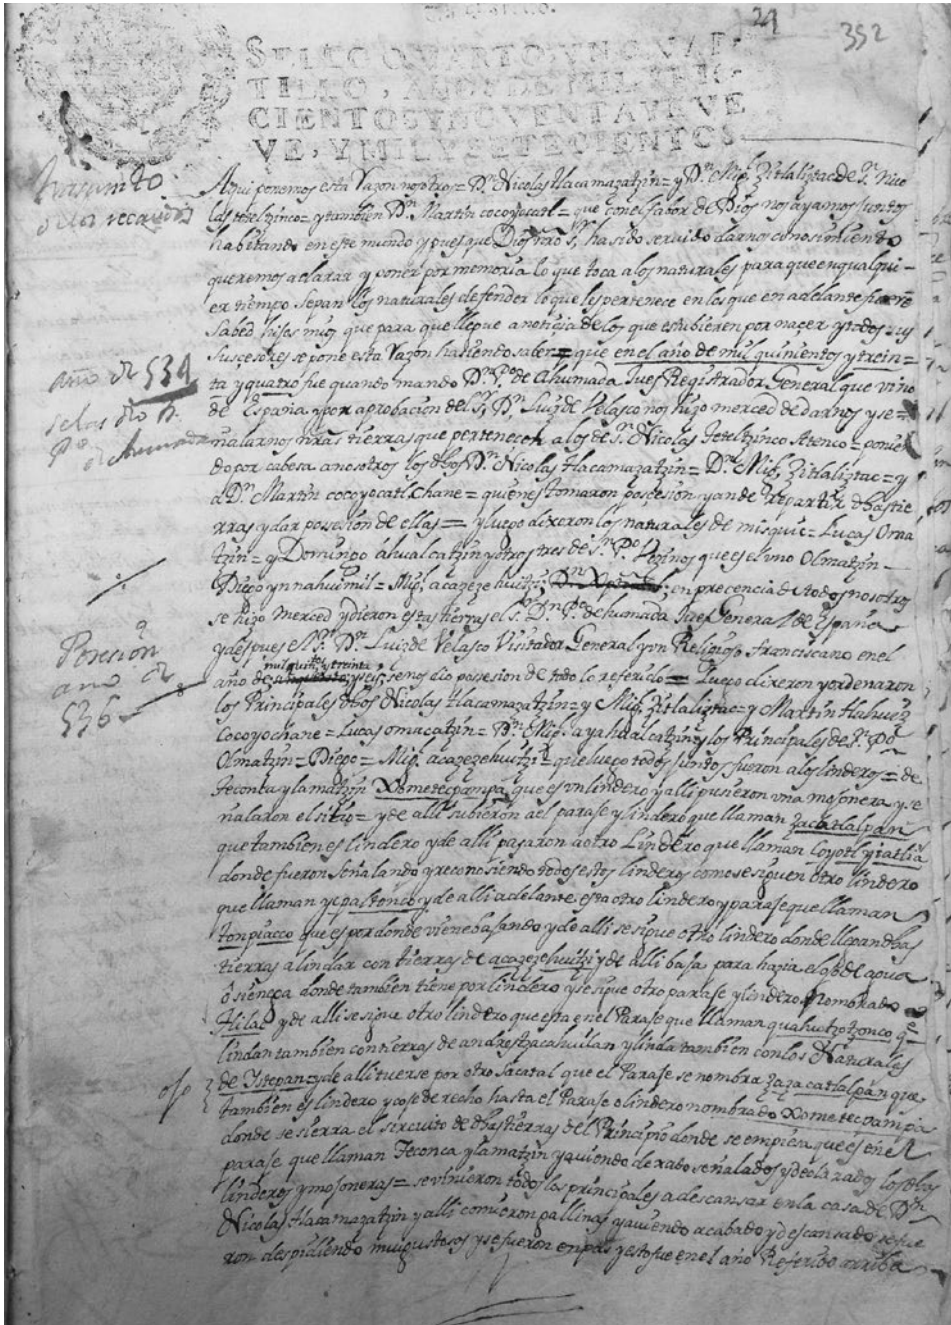 29
352
SELLO QVARTO, VN QVAR
TILLO, AÑOS DE MIL Y SEIS
CIENTOS Y NOVENTA Y NVE
VE, Y MIL Y SETECIENTOS
trasunto
de los recaudos
Aqui ponemos esta Razon nosotros= Dn. Nicolas tlacamazatzin= y Dn. Migl. Zitlaliztac de Sn. Nico
las teteltzinco= y tambien Dn. Martin cocoyocatl= que con el fabor de Dios nos ayamos juntos
habitando en este mundo y pues que Dios nro Sr. ha sido servido darnos conosimiento
queremos aclarar y poner por memoria lo que toca a los naturales para que en qualqui-
er tiempo sepan los naturales defender lo que les pertenece en los que en adelante fueren
Sabed hijos mios que para que llegue a noticia de los que estubieren por nacer y todos sus
suscesores se pone esta Razon hasiendo saber= que en el año de mil quinientos y trein=
ta y quatro fue quando mando Dn. Po. de Ahumada Jues Registrador General que vino
de España y por aprobacion del Sr. Dn. Luis de Velasco nos hizo merced de darnos y se=
ñalarnos nras tierras que pertenecen a los de Sn. Nicolas Teteltzinco Atenco= ponien
do por cabesa a nosotros los dhos Dn. Nicolas tlacamazatzin= Dn. Migl. Zitlaliztac= y
a Dn. Martin cocoyocatl chane= quienes tomaron possesion y an de Repartir dhas tie
rras y dar possesion de ellas= y luego dixeron los naturales de misquic= Lucas Oma
tzin= y Domingo áhualcatzin y otros tres de Sn. Po. Vezinos que es el uno Olmatzin-
Diego ynnahuimil= Migl. acazezehuitzi; en precencia de todos nosotros
se hizo merced y dieron estas tierras el Sr. Dn. Po. de humada Jues General de España
y despues el Sr. Dn. Luis de Velasco Visitador General y vn Religioso franciscano en el
año de mil quitos. y treinta y seis, se nos dio possesion de todo lo referido= Luego dixeron y ordenaron
los Principales dhos Nicolas tlacamazatzin= y Migl. Zitlaliztac= y Martin tlahuiz
Cocoyochane= Lucas omacatzin= Dn. Migl. ayahualcatzin y los Principales de Sn. Po.
Olmatzin= Diego= Migl. acazezehuitzi que luego todos juntos fueron a los linderos= de
Teconca ylamatzin Xometecpampa que es vn lindero y alli pusieron vna mojonera y se
ñalaron el sitio= y de alli subieron a el paraje y lindero que llaman zacatlalpan
que tambien es lindero y de alli pasaron a otro Lindero que llaman Coyotl yiatlia
donde fueron señalando y reconosiendo todos estos linderos como se siguen otro lindero
que llaman ycpaltonco y de alli adelante esta otro lindero y paraje que llaman
tonpiacco que es por donde viene bajando y de alli se sigue otro lindero donde llegan dhas
tierras a lindar con tierras de acazezehuitzi y de alli baja para hazia el ojo de agua
ô sienega donde tambien tiene por lindero y se sigue otro paraje y lindero Nombrado
tlilac y de alli se sigue otro lindero que esta en el Paraje que llaman quahutzotzonco qe.
lindan tambien con tierras de andres tzacahuilan y linda tambien con los Naturales
de Ystepan= y de alli tuerse por otro sacatal que el Paraje se nombra zazacatlalpan que
tambien es lindero y coje derecho hasta el Paraje o lindero nombrado Xometecpampa
donde se sierra el sircuito de dhas tierras del Principio donde se empiesa que es en el
paraje que llaman Teconca ylamatzin y aviendo dexado señalados y declarados los dhos
linderos y mojoneras= se vinieron todos los principales a descansar en la casa de Dn.
Nicolas tlacamazatzin y alli comieron gallinas y aviendo acabado y descansado se fue
ron despidiendo mui gustosos y se fueron en pas y esto fue en el año Referido arriba
año de 534
se las dio D.
Po. de Ahumada
Posesion
año de
536
ojo